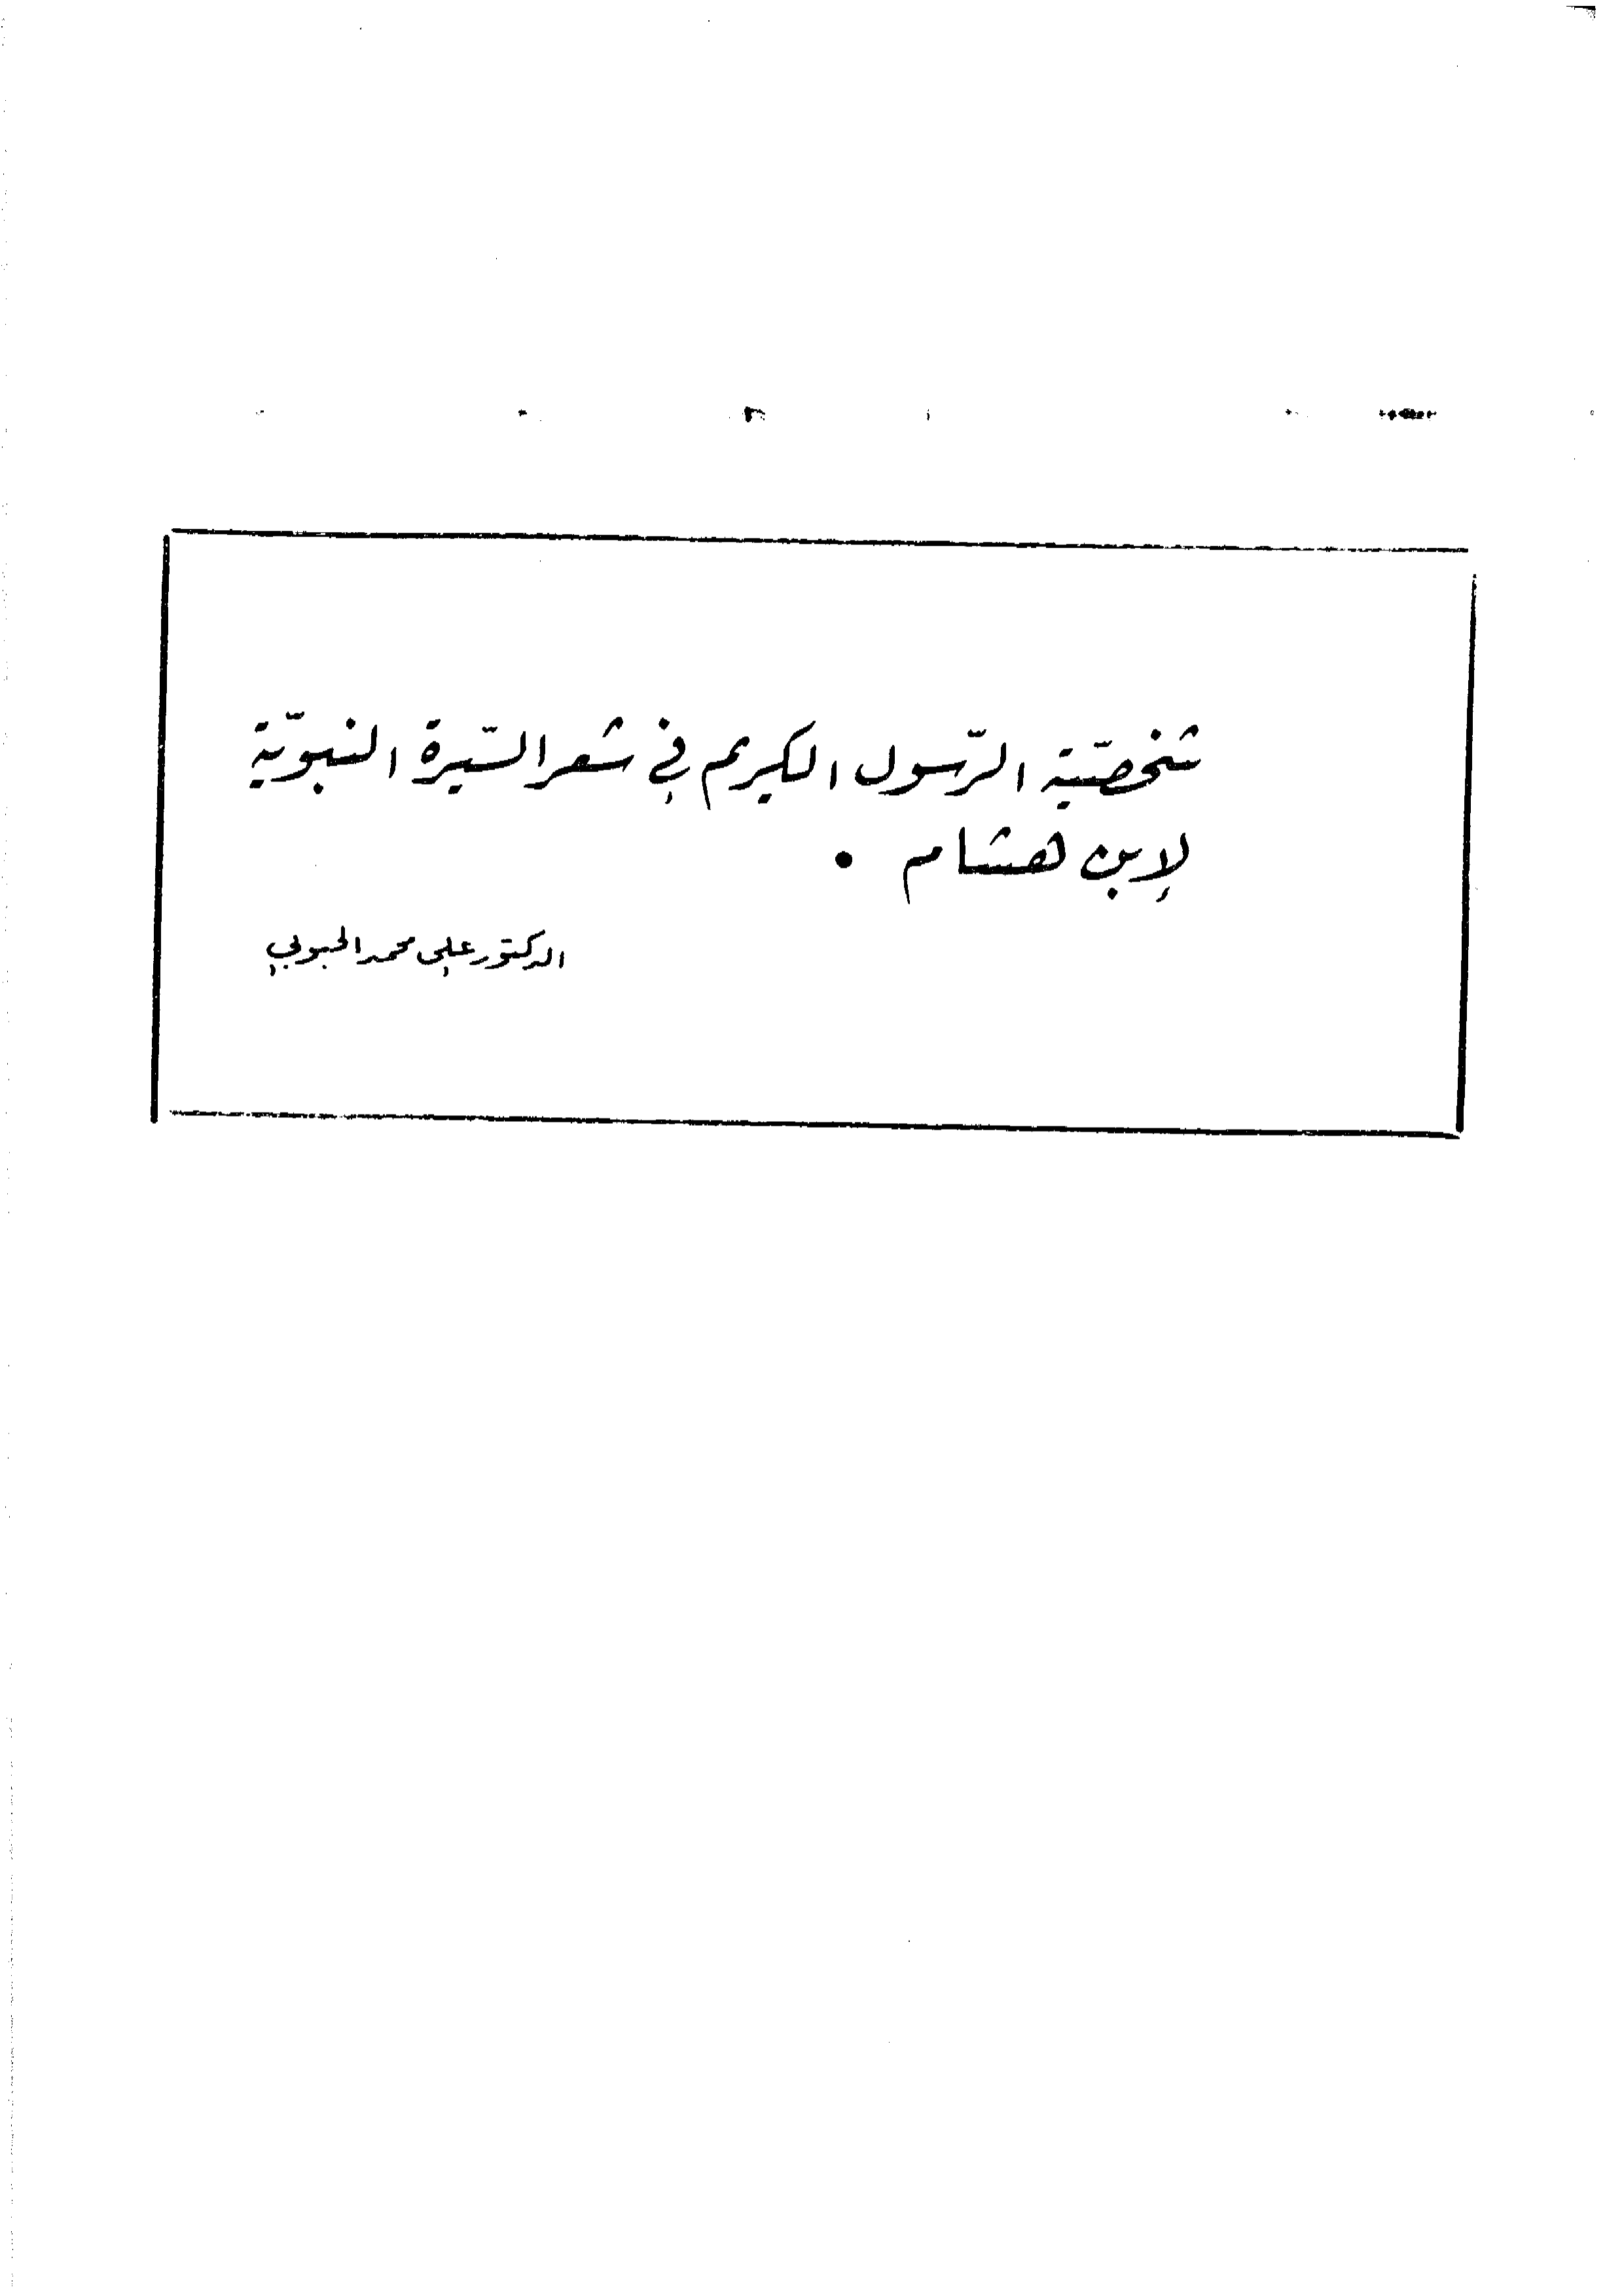 شخصيّة الرّسول الكريم في شعر السّيرة النبويّة
لإبن هشام .
الدكتور علي محمد الحبوبي